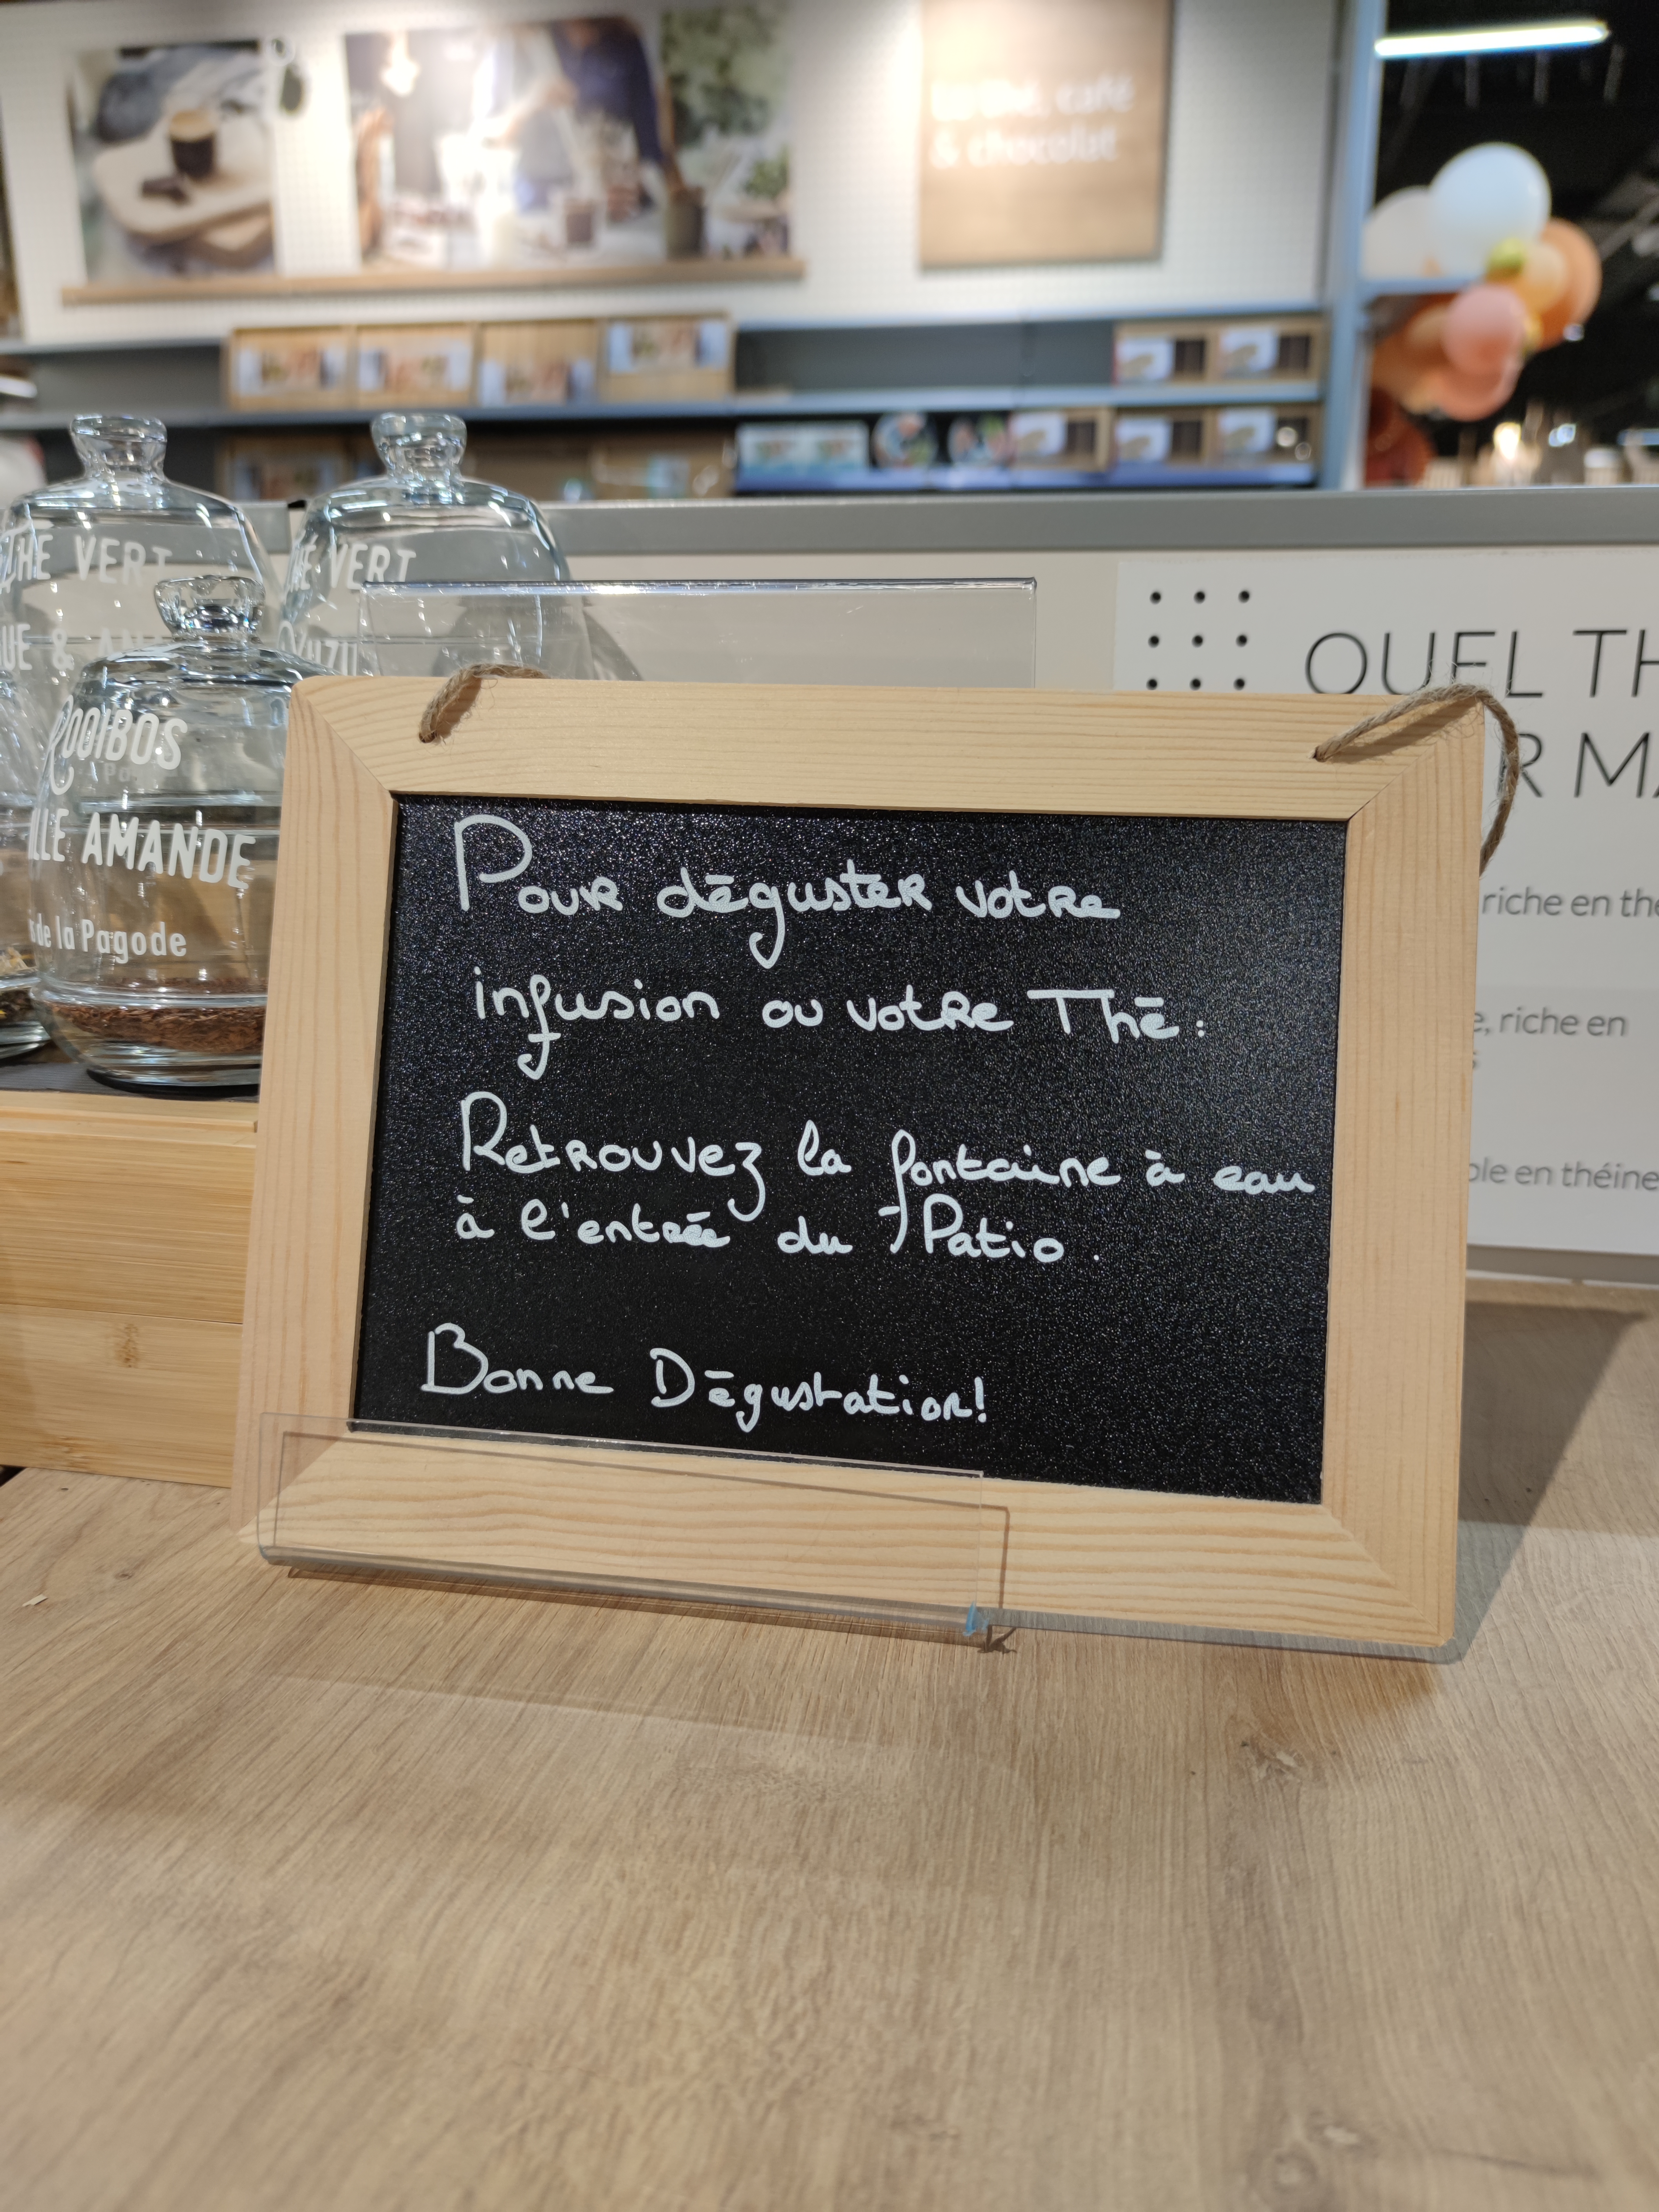 & chocolat
THE VERT
VERT
YUZU
ROOIBOS
AMANDE
de la Pagode
QUEL
riche en
riche en
en théine
Pour déguster votre
infusion ou votre Thé :
Retrouvez la fontaine à eau
à l'entrée du Patio.
Bonne Dégustation!